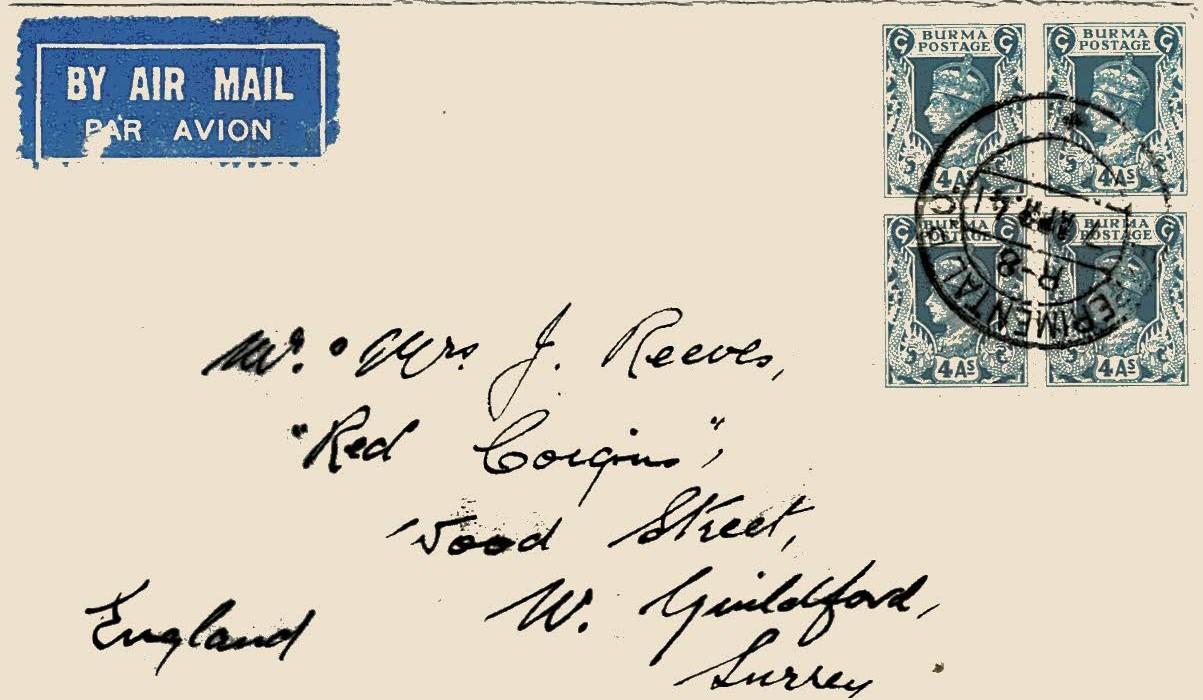 BY AIR MAIL
PAR AVION
BURMA POSTAGE
4 As
BURMA POSTAGE
4 As
BURMA POSTAGE
4 As
BURMA POSTAGE
4 As
R-8
7 APR. 41
Mr. & Mrs J. Reeves,
"Red
Wood Street,
W. Guildford,
Surrey
England